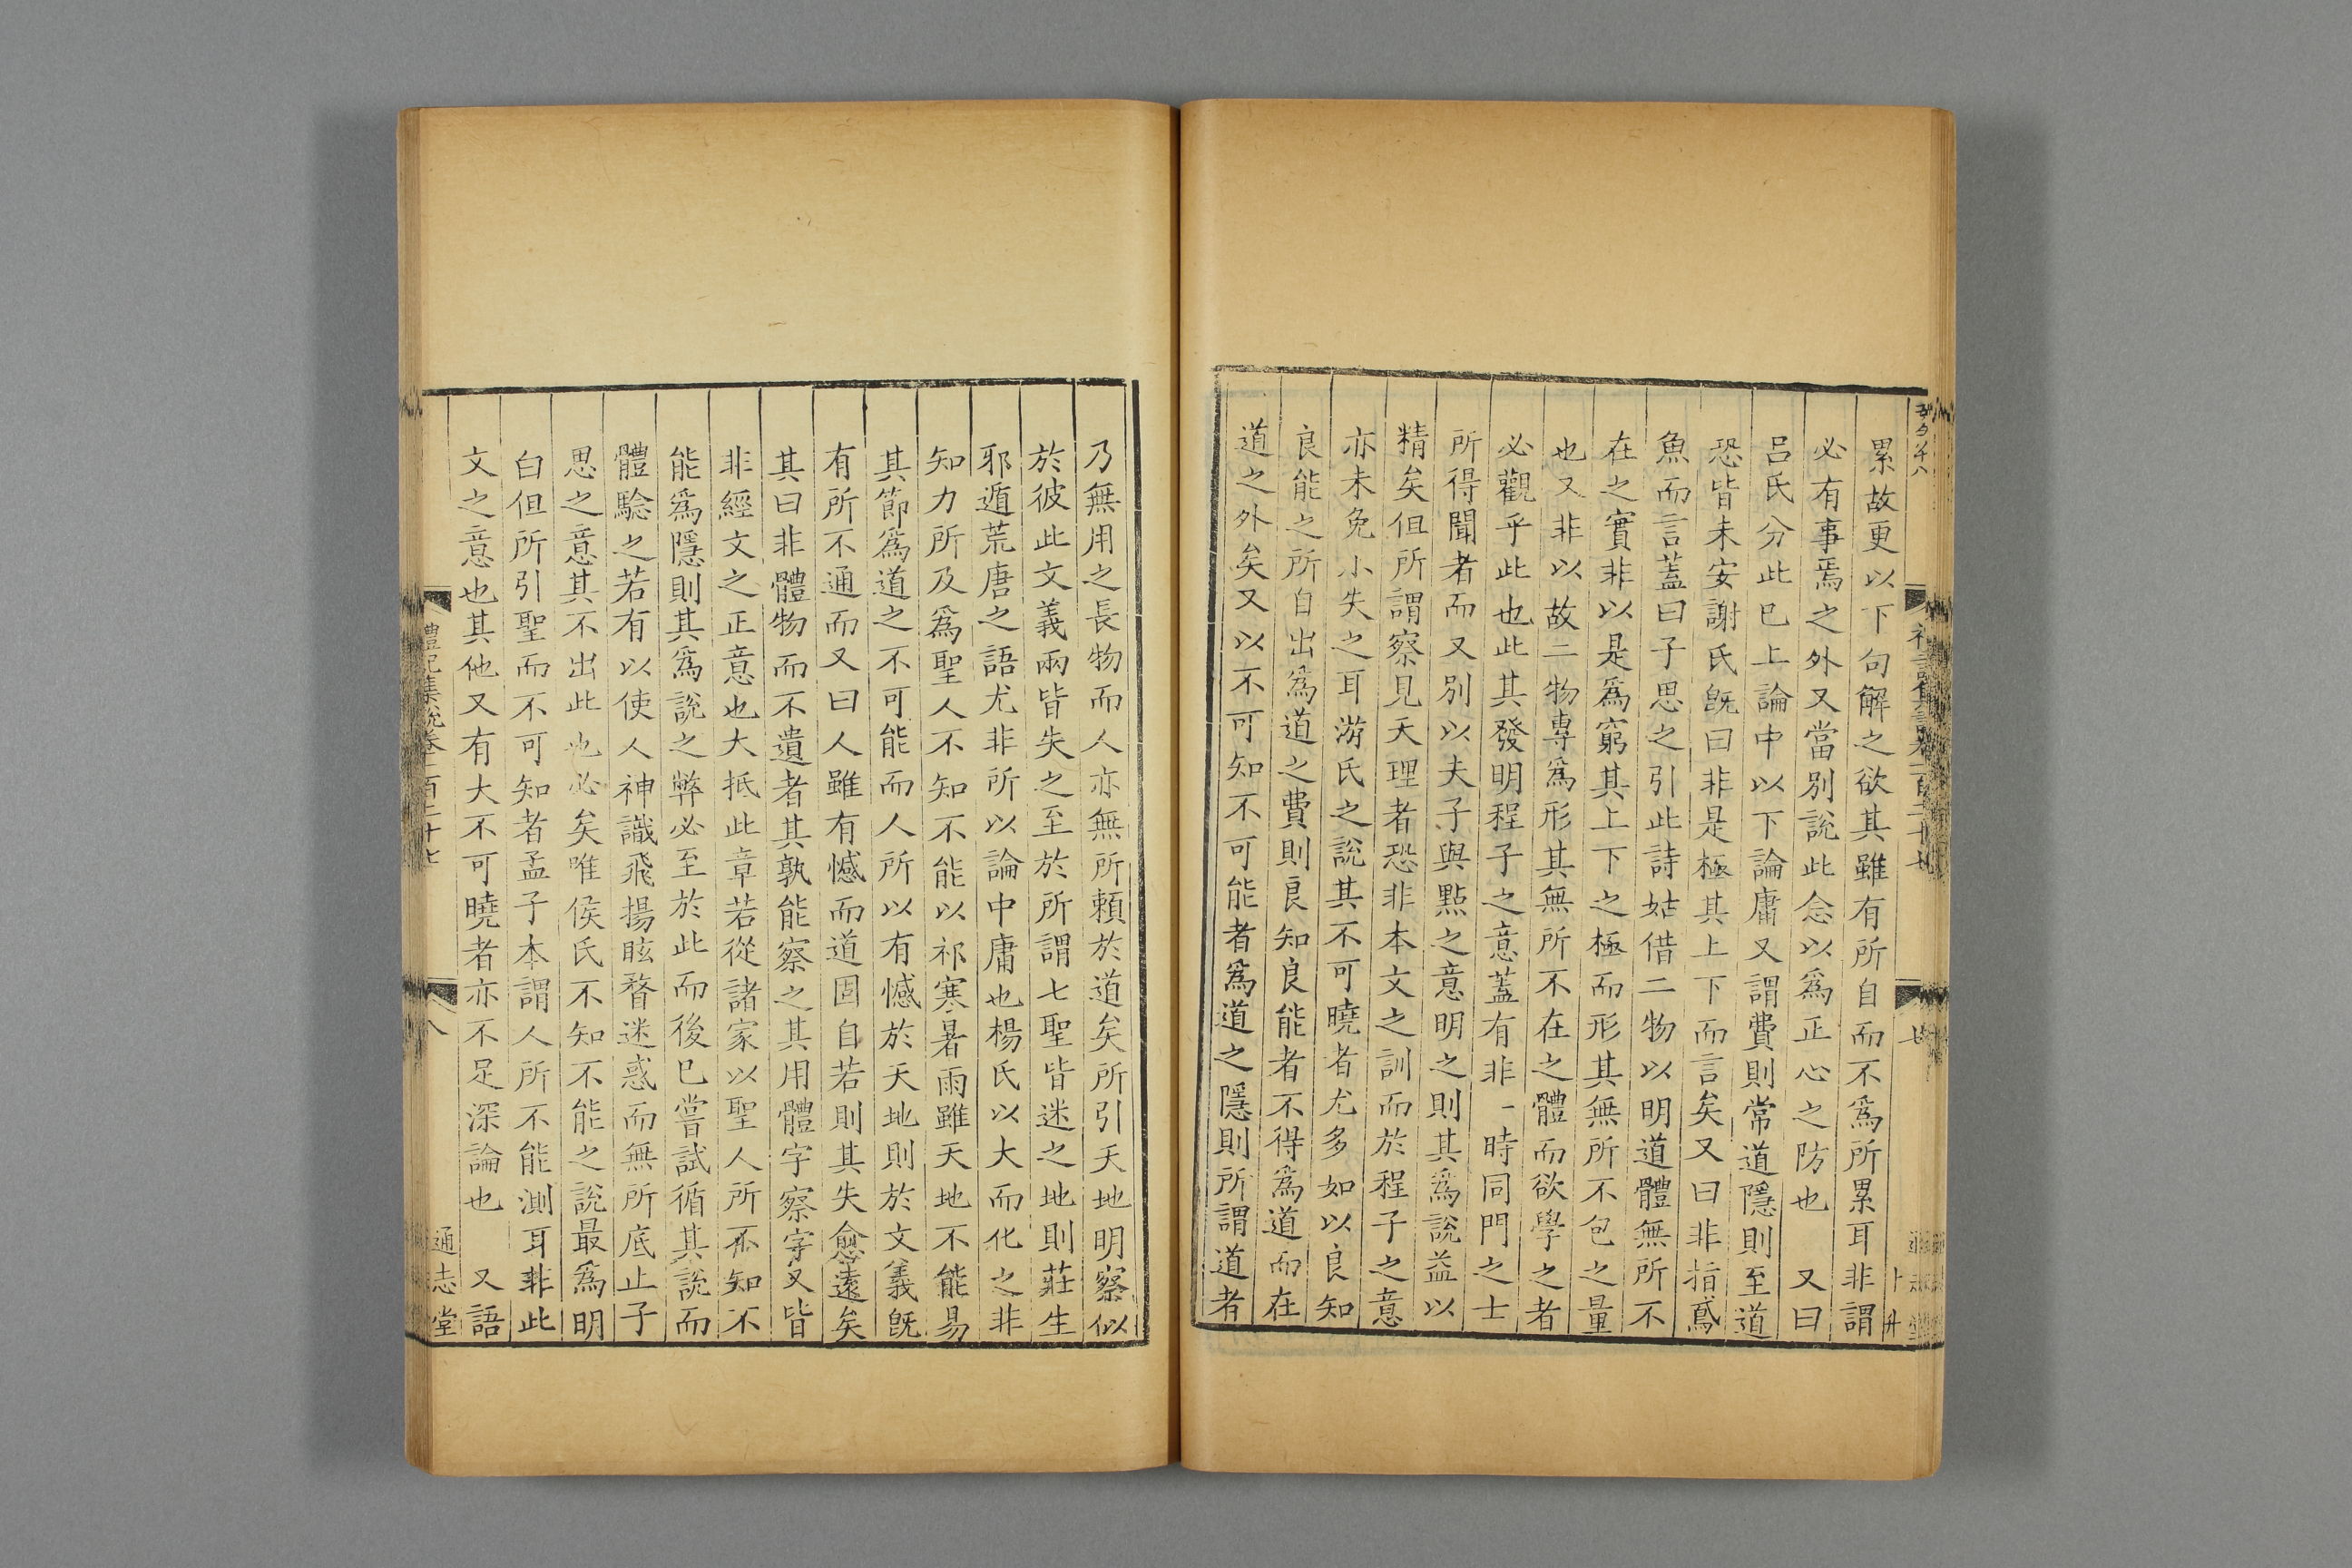 累故更以下句解之欲其雖有所自而不爲所累耳非謂
必有事焉之外又當別說此念以爲正心之防也　又曰
呂氏分此已上論中以下論庸又謂費則常道隱則至道
恐皆未安謝氏旣曰非是極其上下而言矣又曰非指鳶
魚而言蓋曰子思之引此詩姑借二物以明道體無所不
在之實非以是爲窮其上下之極而形其無所不包之量
也又非以故二物專爲形其無所不在之體而欲學之者
必觀乎此也此其發明程子之意蓋有非一時同門之士
所得聞者而又別以夫子與點之意明之則其爲說益以
精矣但所謂察見天理者恐非本文之訓而於程子之意
亦未免小失之耳游氏之說其不可曉者尤多如以良知
良能之所自出爲道之費則良知良能者不得爲道而在
道之外矣又以不可知不可能者爲道之隱則所謂道者
乃無用之長物而人亦無所賴於道矣所引天地明察似
於彼此文義兩皆失之至於所謂七聖皆迷之地則莊生
邪遁荒唐之語尤非所以論中庸也楊氏以大而化之非
知力所及爲聖人不知不能以祁寒暑雨雖天地不能易
其節爲道之不可能而人所以有憾於天地則於文義旣
有所不通而又曰人雖有憾而道固自若則其失愈遠矣
其曰非體物而不遺者其孰能察之其用體字察字又皆
非經文之正意也大抵此章若從諸家以聖人所不知不
能爲隱則其爲說之弊必至於此而後已嘗試循其說而
體驗之若有以使人神識飛揚眩瞀迷惑而無所底止子
思之意其不出此也必矣唯侯氏不知不能之說最爲明
白但所引聖而不可知者孟子本謂人所不能測耳非此
文之意也其他又有大不可曉者亦不足深論也　又語
禮記集說卷一百二十七
八
通志堂